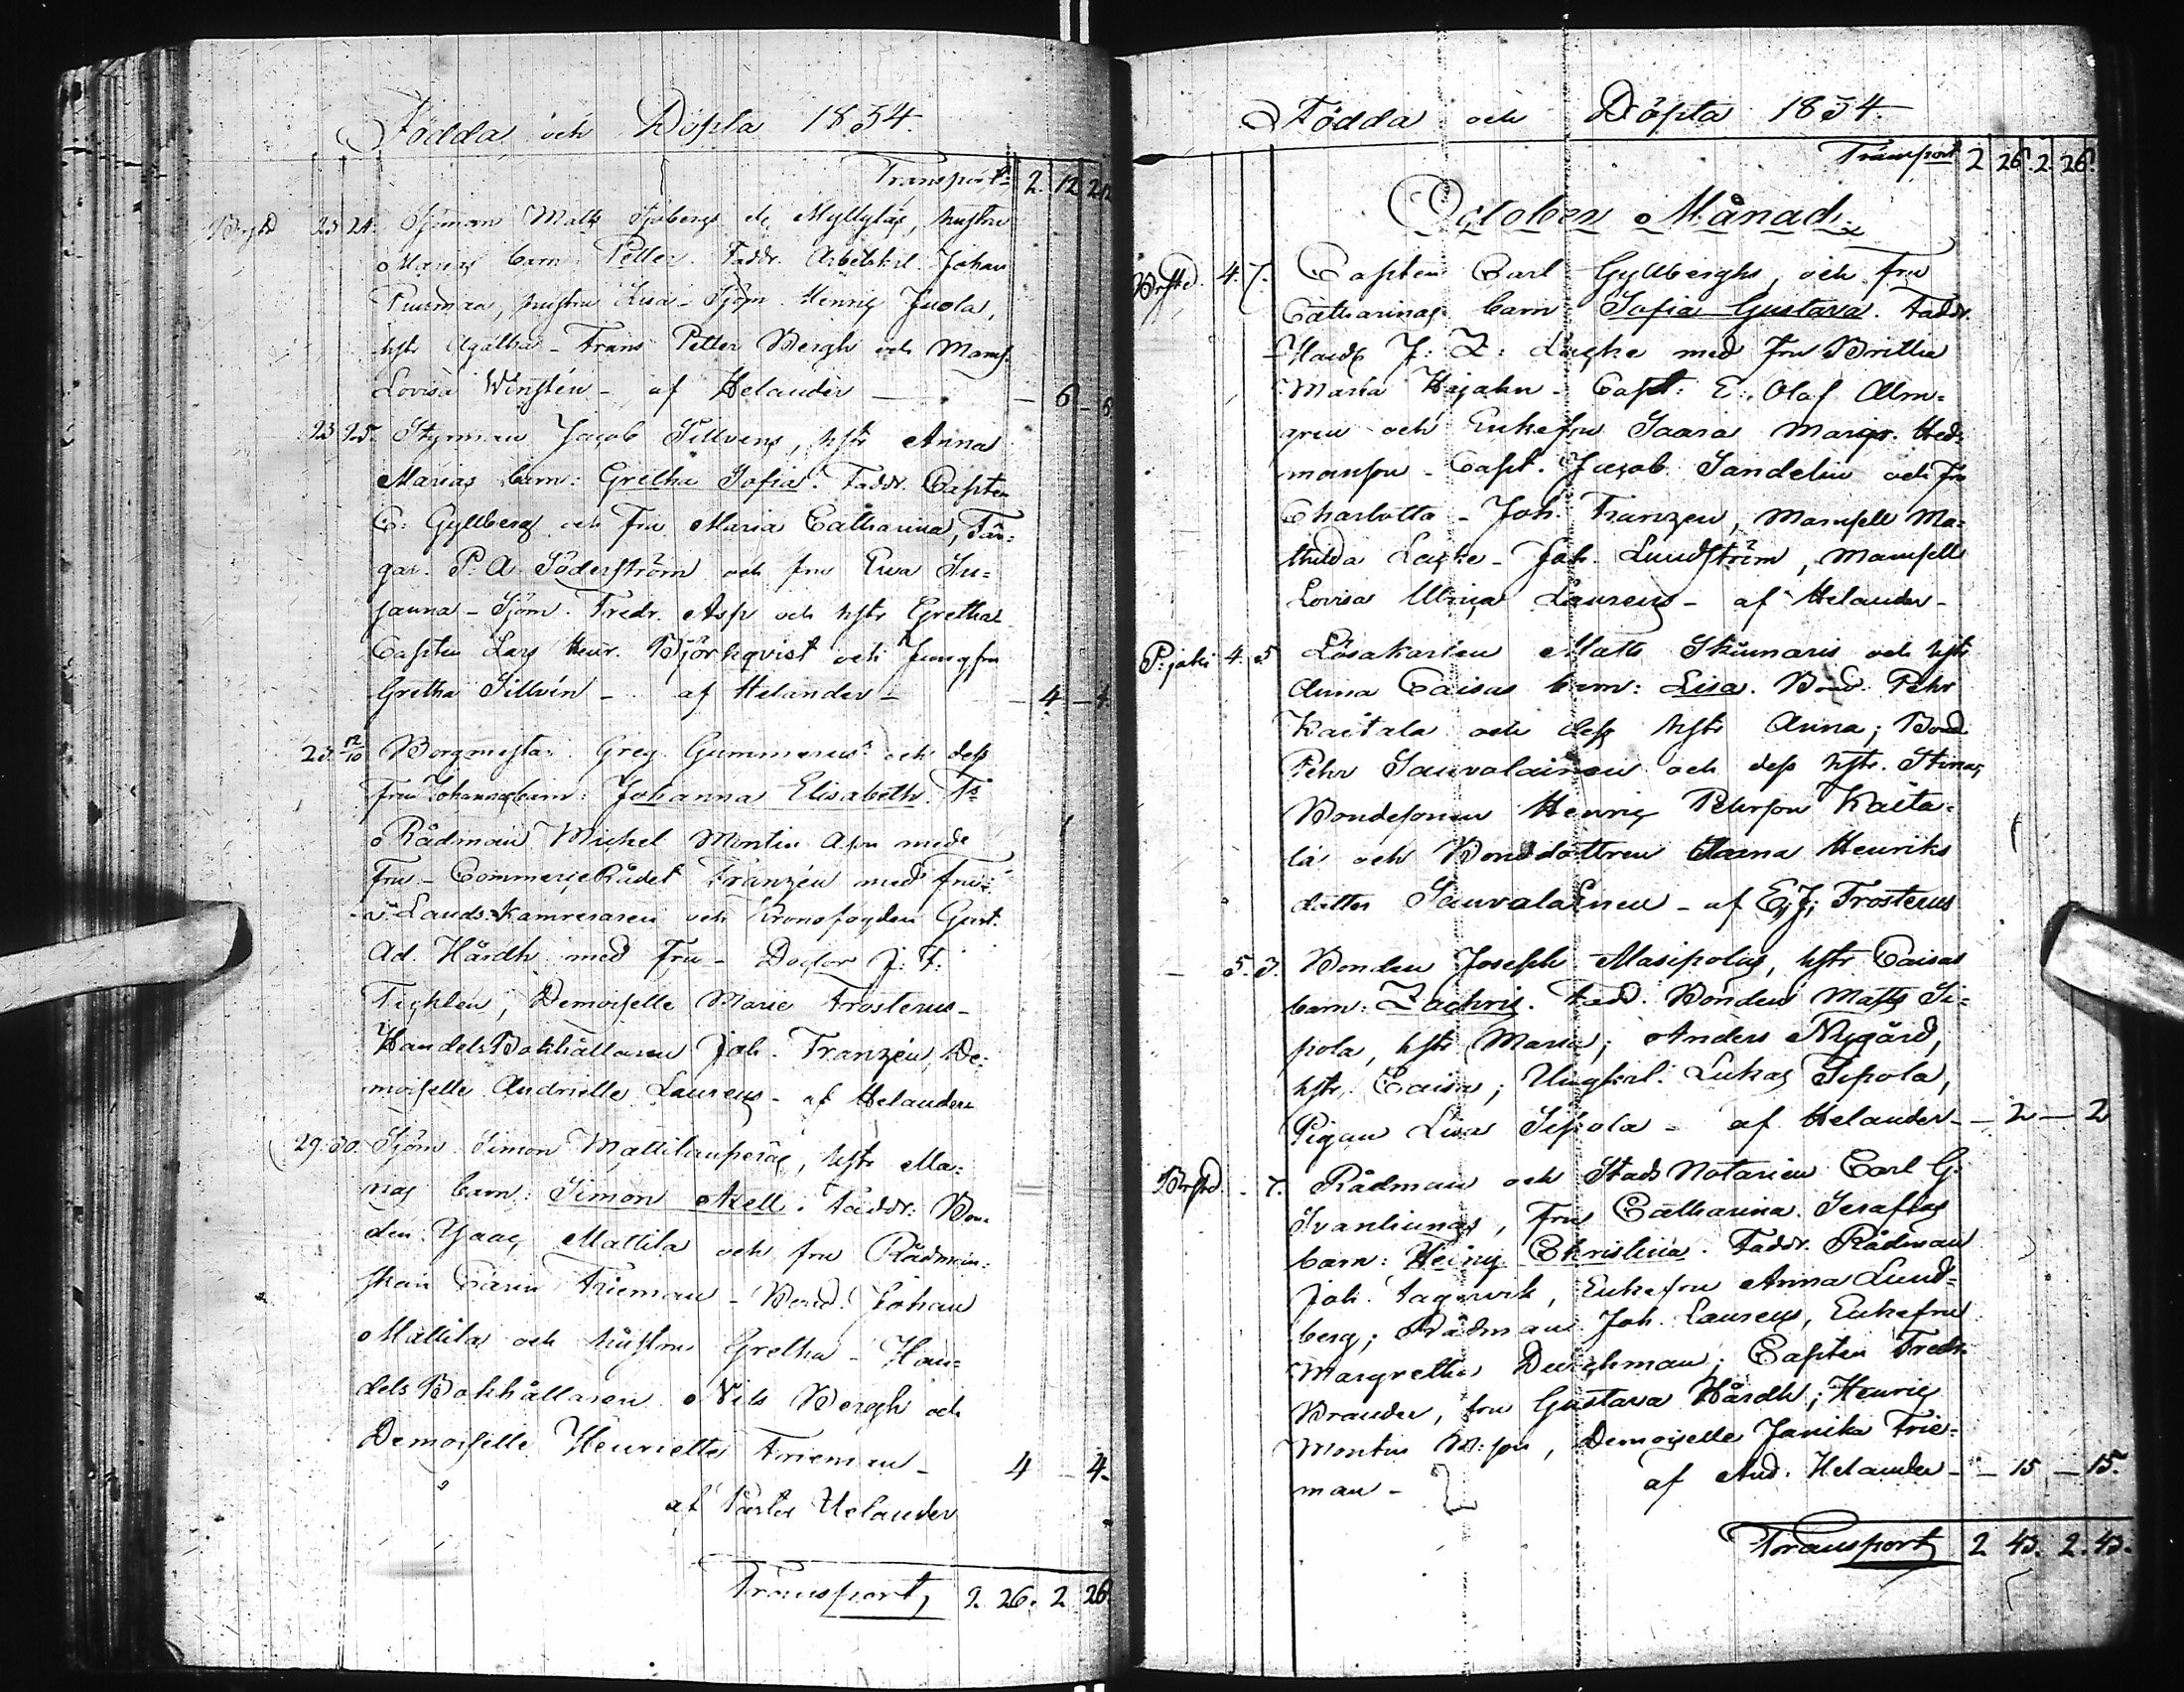 Födda och Döpta 1834.
Transport 2. 12 2.12
Brgsd 23 24. Sjöman Matts Sjöbergs de Myllylä, hustru
Marias barn: Petter. Faddr. Arbetskl. Johan
hustru Lisa - Sjöm. Henric Juola,
hstr Agatha - Frans Petter Bergh och Mams.
Lovisa Winstén - af Helander - 6 - 6
23 25. Styrman Jacob Sillvens, hstr Anna
Marias barn: Gretha Sofia. Faddr. Capten
C. Gyllberg och Fru Maria Catharina, Fär=
gar. P: A. Söderström och fru Ewa Su=
sanna - Sjöm. Fredr. Asp och hstr Gretha
Capten Lars Henr. Björkqvist och Jungfru
Gretha Sillvén - af Helander - 4 - 4.
23. 12/10 Borgmästar. Greg. Gummerus och dess
fru Johannas barn: Johanna Elisabeth. Fs
Rådman Michel Montin Ason med
Fru - CommerceRådet Franzén med Fru
Lands-Kamreraren och Kronofogden Gust.
Ad. Hårdh med Fru - Doctor J: F:
Ticklen, Demoiselle Marie Frosterus -
HandelsBokhållaren Joh. Franzén, De=
moiselle Andriette Laurens - af Helander
29. 30. Sjöm. Simon Mattilanperäs, hstr Ma=
rias barn: Simon Axell. Faddr: Bon=
den Isaac Mattila och fru Rådman=
skan Carin Frieman - Bond. Johan
Mattila och hustru Gretha - Han=
delsBokhållaren Nils Bergh och
Demoiselle Henrietta Frieman - 4 - 4 -
af Pastor Helander
Transport, 2. 26. 2 26.
Födda och Döpta 1834.
Transport 2 26. 2. 26.
October Månad.
Brstd. 4. 7. Capten Carl Gyllberghs, och fru
Catharinas barn Sofia Gustava. Faddr.
Handl J: Z: Lacke med fru Britha
Maria - Capt: E. Olof Alm=
gren och Enkefru Saara Margr. Hed=
manson - Capt. Jacob Sandelin och fru
Charlotta - Joh. Franzen, Mamsell Ma=
thilda Lacke - Joh. Lundström, Mamsell
Lovisa Ulrica Laurens - af Helander -
P:joki 4. 5 Lösakarlen Matts Skinnaris och hstr
Anna Caisas barn: Lisa. Bond. Pehr
Kaitala och dess hstr Anna; Bond
Pehr Sauvolainen och dess hstr. Stina;
Bondesonen Henric Pehrson Kaita=
la och Bonddottren Anna Henriks
dotter Sauvalainen - af E; J; Frosterus
- 5. 3. Bonden Joseph Masipolas, hstr Caisas
barn: Zachris. Fadd. Bonden Matts Si=
pola, hstr Maria; Anders Nygård,
hstr. Caisa; Ungkrl. Lukas Sipola,
Pigan Lisa Sipola - af Helander - - 2 - 2
Brstd. - 7. Rådman och Stads Notarien Carl G.
Svanliungs, Fru Catharina Serafias
barn: Christina. Faddr. Rådman
Joh. Lagervik, Enkefru Anna Lund=
berg; Rådman Joh. Laurens, Enkefru
Margretha Deuchman; Capten Fredr.
Brander, fru Gustava Hårdh; Henric
Montin M:son, Demoiselle Janika Frie=
man - af And. Helander - - 15 - 15.
Transport, 2 43. 2. 43.